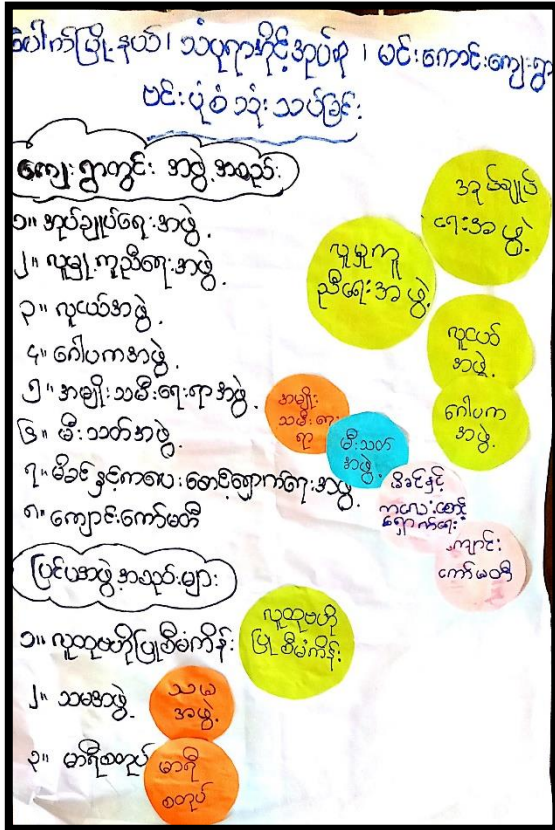 ပေါက်မြို့နယ်၊ သံပုရာကိုင်းအုပ်စု ၊ မင်းကောင်းကျေးရွာ
ဗင်းပုံစံ သုံးသပ်ခြင်း
ကျေးရွာတွင်း အဖွဲ့အစည်း
၁။ အုပ်ချုပ်ရေးအဖွဲ့
၂။ လူမှုကူညီရေးအဖွဲ့
၃။ လူငယ်အဖွဲ့
၄။ ဂေါပကအဖွဲ့
၅။ အမျိုးသမီးရေးရာအဖွဲ့
၆။ မီးသတ်အဖွဲ့
၇။ မိခင်နှင့်ကလေးစောင့်ရှောက်ရေးအဖွဲ့
၈။ ကျောင်းကော်မတီ
ပြင်ပအဖွဲ့အစည်းများ
၁။ လူထုဗဟိုပြုစီမံကိန်း
၂။ သမအဖွဲ့
၃။ မာရီစတုပ်
အုပ်ချုပ်
ရေးအဖွဲ့
လူမှုကူ
ညီရေးအဖွဲ့
လူငယ်
အဖွဲ့
ဂေါပက
အဖွဲ့
အမျိုး
သမီးရေး
ရာ
မီးသတ်
အဖွဲ့
မိခင်နှင့်
ကလေးစောင့်
ရှောက်ရေး
ကျောင်း
ကော်မတီ
လူထုဗဟို
ပြုစီမံကိန်း
သမ
အဖွဲ့
မာရီ
စတုပ်